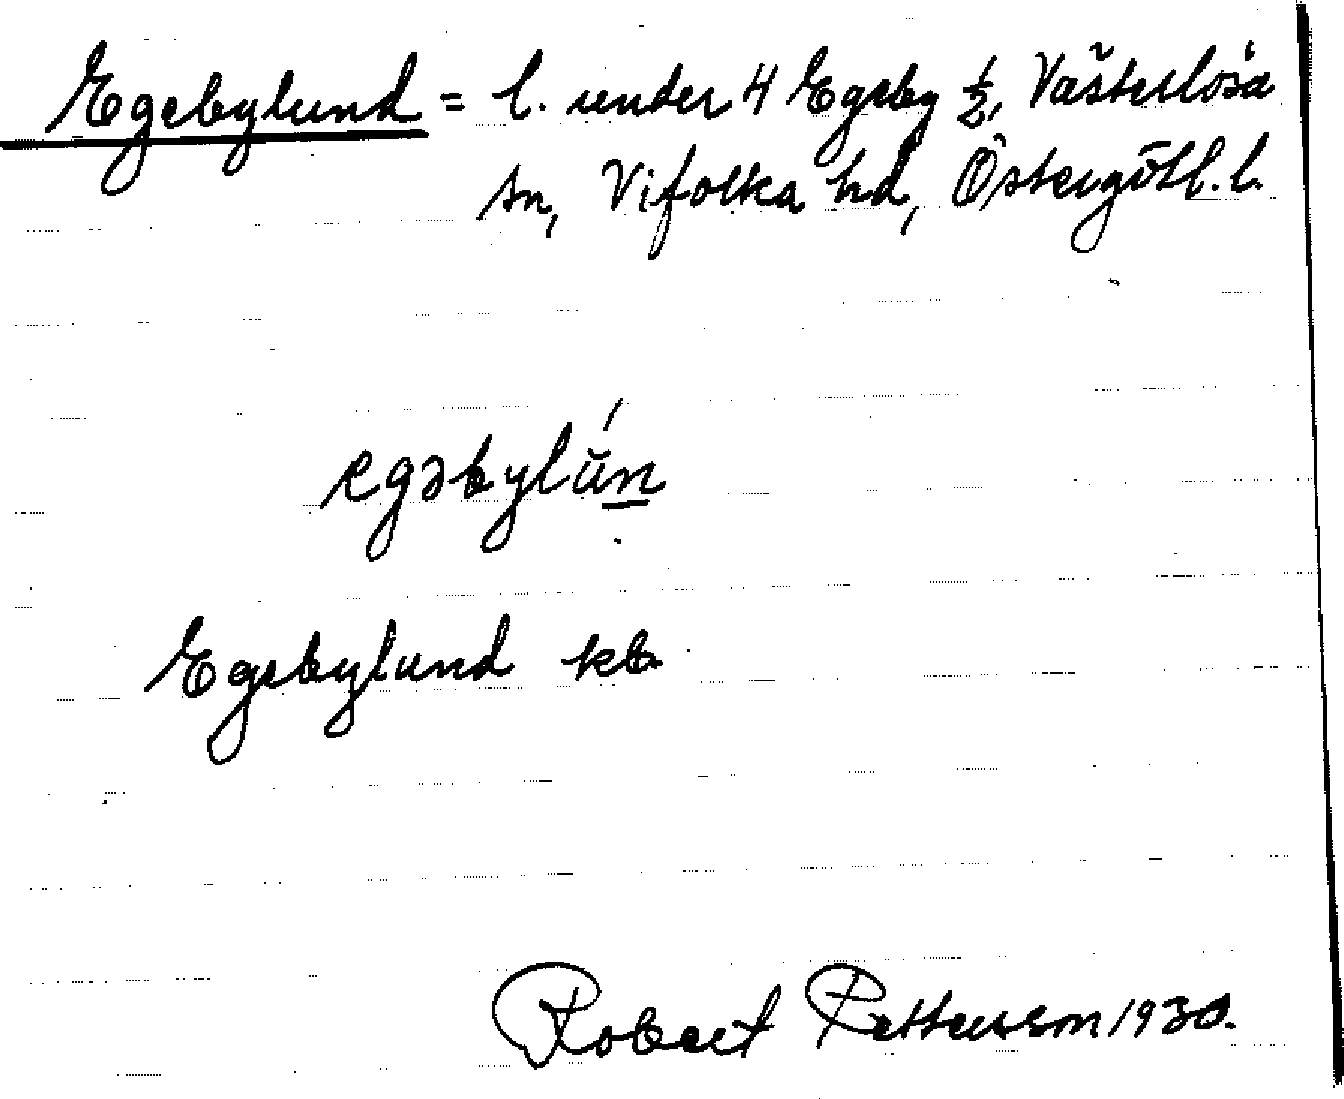 Egebylund = l. under 4 Egeby ½, Västerlösa
sn, Vifolka hd, Östergötl. l.
egəbylún
Egebylund kb.
Robert Pettersson 1930.